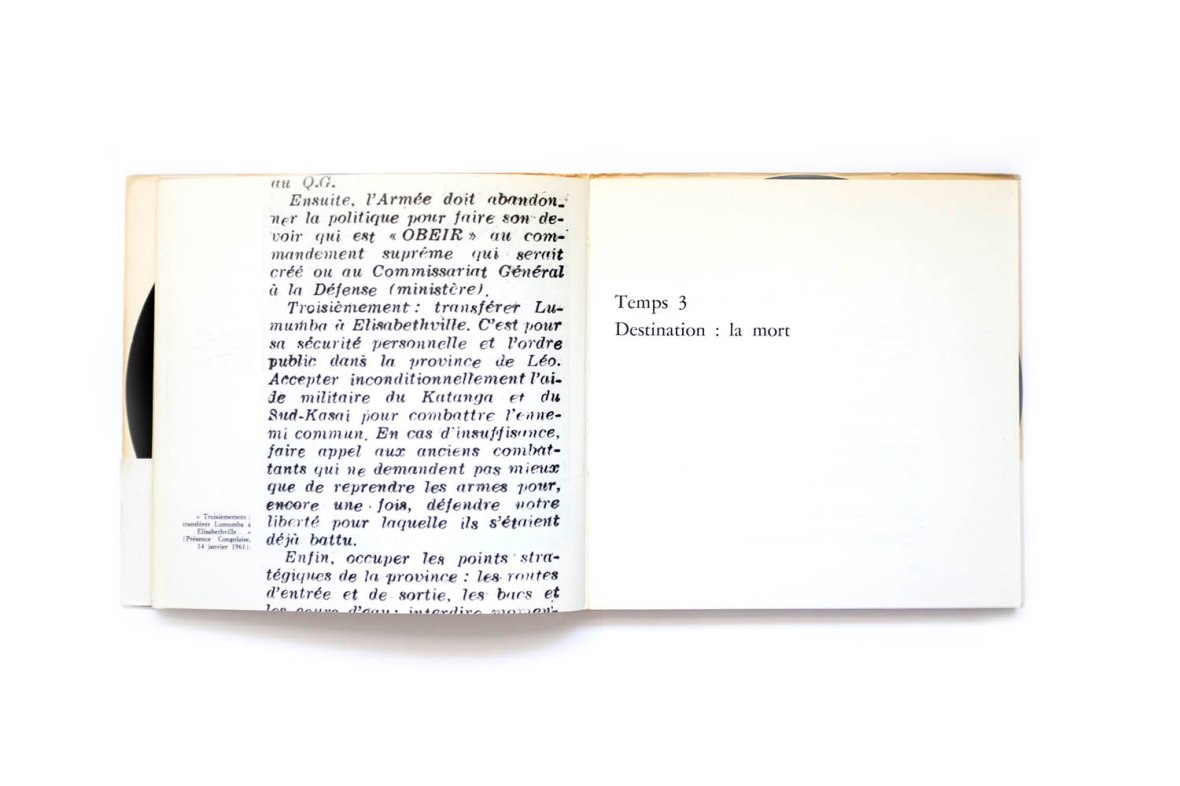 au Q.G.
Ensuite, l'Armée doit abandon-
ner la politique pour faire son de-
voir qui est « OBEIR » au com-
mandement suprême qui serait
créé ou au Commissariat Général
à la Défense (ministère).
Troisièmement : transférer Lu-
mumba à Elisabethville. C'est pour
sa sécurité personnelle et l'ordre
public dans la province de Léo.
Accepter inconditionnellement l'ai-
de militaire du Katanga et du
Sud-Kasai pour combattre l'enne-
mi commun. En cas d'insuffisance,
faire appel aux anciens combat-
tants qui ne demandent pas mieux
que de reprendre les armes pour,
encore une fois, défendre notre
liberté pour laquelle ils s'étaient
déjà battu.
Enfin, occuper les points stra-
tégiques de la province : les routes
d'entrée et de sortie, les bacs et
les cours d'eau; interdire
« Troisièmement :
transférer Lumumba à
Elisabethville... »
(Présence Congolaise,
14 janvier 1961).
Temps 3
Destination : la mort